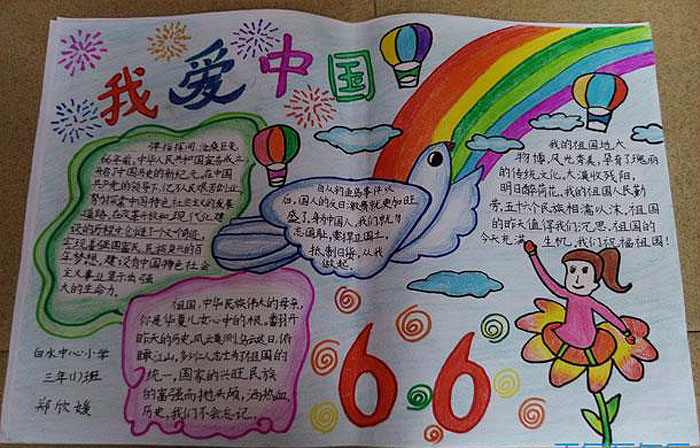 我爱中国
弹指挥间,沧桑巨变
66年前,中华人民共和国宣告成立
开启了中国历史的新纪元。在中国
共产党的领导下,亿万人民艰苦创业,
努力探索中国特色社会主义的发展
道路。在改革开放和现代化建
设的历程中创造了一个个奇迹,
实现着强国富民、民族复兴的百
年梦想,建设有中国特色社会
主义事业显示出强
大的生命力。
自从钓鱼岛事件以
伯,国人的反日激情就更加旺
盛了,身为中国人,我们就为
志国耻,索捍卫国土。
抵制日货,从我
做起。
我的祖国地大
物博,风光秀美,孕育了瑰丽
的传统文化。大漠收残阳,
明日醉荷花。我的祖国人民勤
劳,五十六个民族相濡以沫。祖国
的昨天值得我们沉思。祖国的
今天充满生机,我们祝福祖国!
祖国,中华民族伟大的母亲,
你是华夏儿女心中的根。翻开
昨天的历史,风云集倒,乌云遮日,俯
瞰江山,多少仁人志士有了祖国的
统一,国家的兴旺民族
的富强而抛头颅,洒热血,
历史,我们不会忘记。
白水中心小学
三年(1)班
郑欣媛
6.6